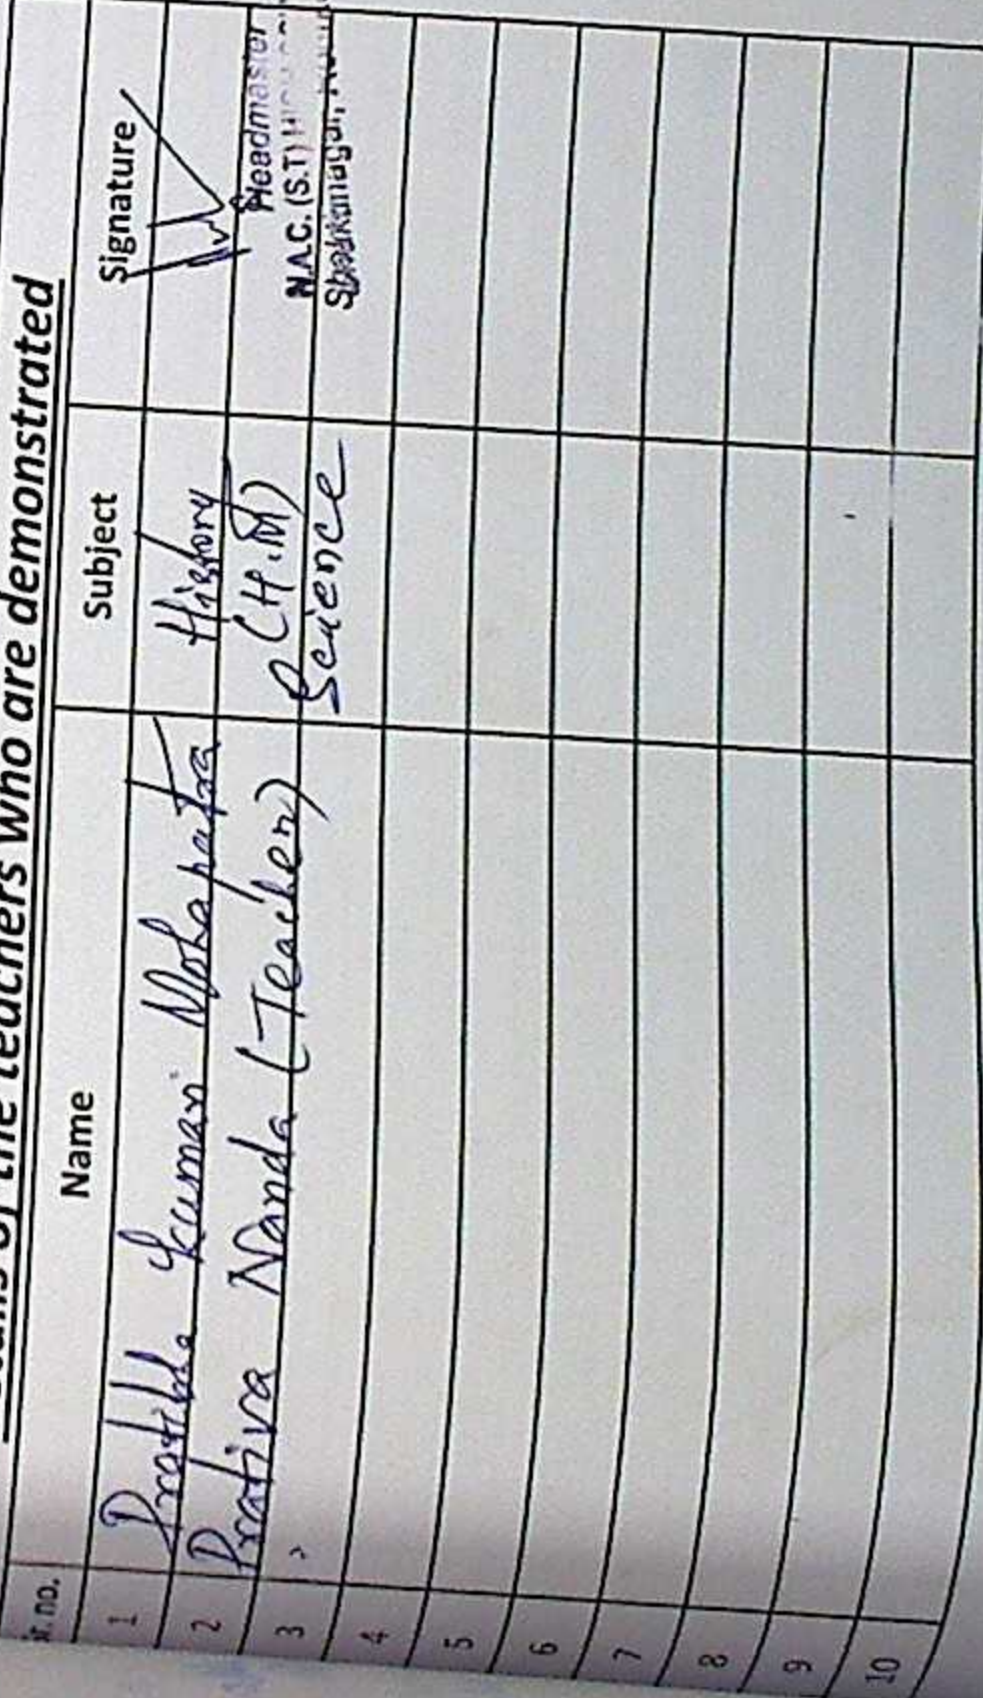 of the teachers who are demonstrated
Sr. no. Name Subject Signature
1 Kumar Mohapatra History
2 Prativa Nanda (Teacher) (H.M)
3 Science
Headmaster
N.A.C. (S.T)
4
5
6
7
8
9
10